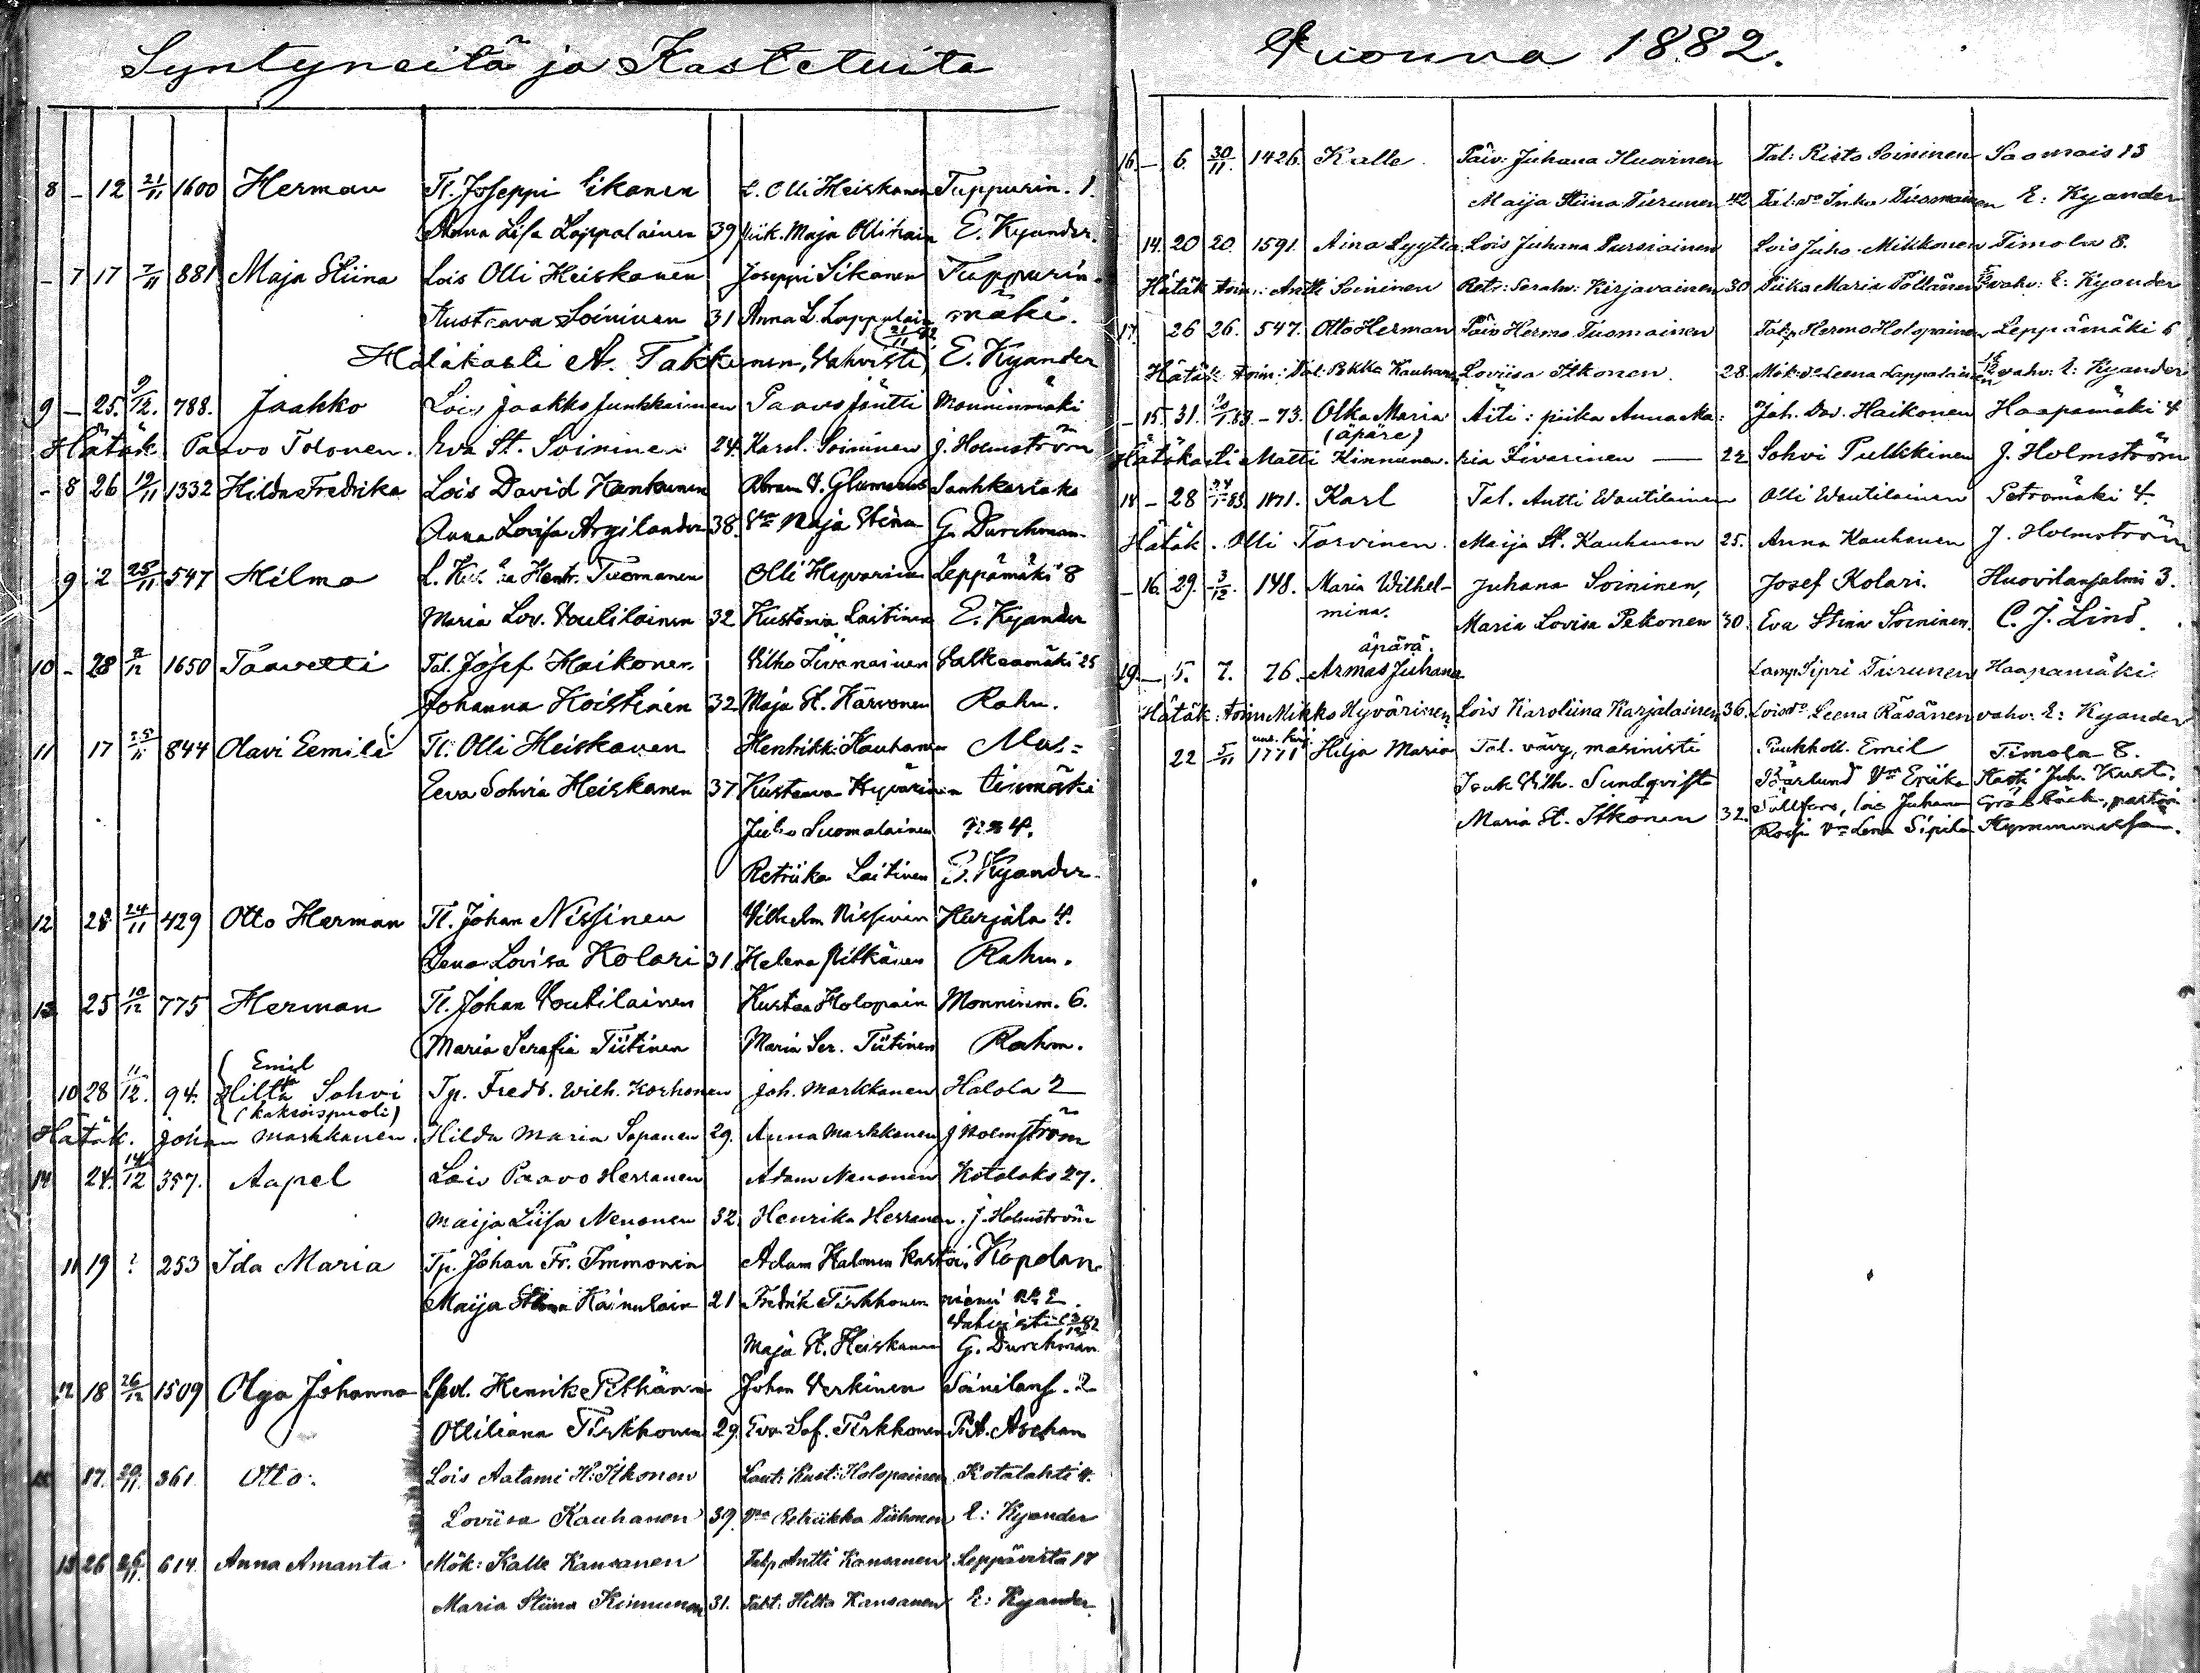 Syntyneitä ja Kastetuita
8 - 12 21/11 1600 Herman Tl. Joseppi Sikanen L. Olli Heiskanen Tuppurin. 1.
Anna Lisa Lappalainen 39 Piik. Maja Ollikain E. Kyander.
- 7 17 7/11 881 Maja Stiina Lois Olli Heiskanen Joseppi Sikanen Tuppurin-
Kustaava Soininen 31 Anna L. Lappalain mäki.
Hätäkasti A. Takkunen, Vahvisti 21/11 82 E. Kyander
9 - 25. 9/12. 788. Jaakko Lois Jaakko Junkkainen Paavo Jäntti Monninmäki
Hätäk Paavo Tolonen. Eva St. Soininen 24. Karol. Soininen J. Holmström
- 8 26 19/11 1332 Hilda Fredrika Lois David Hankunen Abram V. Glumerus Sauhkarlaks
Anna Lovisa Argilander 38. Vmo Maja Stina G. Durchman.
9 2 25/11 547 Hilma L. Hentr. Tuomanen Olli Hyvarinen Leppämäki 8
Maria Lov. Voutilainen 32 Kustava Laitinen E. Kyander
10 - 28 9/12 1650 Taavetti Tal. Josef Haikonen Vilho Iivanainen Valkeamäki 25
Johanna Hoistinen 32 Maja St. Karvonen Rahm.
11 17 25/11 844 Olavi Eemili Tl. Olli Heiskanen Henrikki Kauhanen Mus-
Eeva Sohvia Heiskanen 37 Kustaava Hyvärinen tinmäki
Juho Suomalainen No 4.
Retriika Laitinen E. Kyander.
12 28 24/11 429 Otto Herman Tl. Johan Nissinen Vilhelm Nissinen Kurjala 4.
Lena Lovisa Kolari 31. Helena Pitkänen Rahm.
13 25 10/12 775 Herman Tl. Johan Voutilainen Kustaa Holopain Monninm. 6.
Maria Serafia Tiitinen Maria Ser. Tiitinen Rahm.
Emil
10 28 11/12. 94. Hilta Sohvi Tp. Fredr. Wilh. Korhonen Joh. Markkanen Halola 2
(kaksoispuoli)
Hätäk. Johan Markkanen. Hilda Maria Sopanen 29. Anna Markkanen J Holmström
14 24. 14/12 357. Aapel Lois Paavo Herranen Adam Nenonen Kotalaks 27.
Maija Liisa Nenonen 32. Henrika Herranen. J. Holmström
11 19 ? 253 Ida Maria Tp. Johan Fr. Immonen Adam Halonen kastoi Kopolan-
Maija Stiina Kainulain 21 Fredrik Tirkkonen niemi No 2.
Vahvisti 3/12 82
Maja St. Heiskanen G. Durchman
12 18 26/12 1509 Olga Johanna Spol. Henrik Pitkänen Johan Verkinen Soinilans. 2
Ottiliana Tirkkonen 29. Eva Sof. Tirkkonen P. A. Aschan
17. 20/11. 361 Otto. Lois Aatami H: Itkonen Laut: Kust: Holopainen Kotalahti 4.
Loviisa Kauhanen 39. Vmo Retriikka Tiihonen E: Kyander
13 26 26/11. 614 Anna Amanta Mök: Kalle Kansanen Talp Antti Kansanen Leppävirta 17
Maria Stiina Kinnunen 31. Talt: Hilta Kansanen E: Kyander
Vuonna 1882.
16 - 6. 30/11. 1426. Kalle Päiv: Juhana Huovinen Tal: Risto Soininen Saamais 13
Maija Stiina Tirunen 42 Tal: vo Inka Tuomainen E: Kyander
14. 20 20. 1591. Aina Lyytia Lois Juhana Pursiainen Lois Juho Mikkonen Timola 8.
Hätäk toim.: Antti Soininen Retr: Serahv: Kirjavainen 30 Piika Maria Pöllänen vahv: E: Kyander
17. 26 26. 547. Otto Herman Päiv Hermo Tuomainen Talp. Hermo Holopainen Leppämäki 6
Hätäk toim: Tal: Pekka Kauhanen Loviisa Itkonen 28. Mök. vo Leena Lappalainen vahv: E: Kyander
- 15. 31. 10/1 83. - 73. Olka Maria Äiti: piika Anna Ma: Joh. Dav. Haikonen Haapamäki 4
(äpäre)
Hätäkasti Matti Kinnunen. ria Iivarinen — 22 Sohvi Pulkkinen J. Holmström
18 - 28 1871. Karl Tal. Antti Woutilainen Olli Woutilainen Petromäki 4.
Hätäk. Olli Tarvinen. Maija St. Kauhanen 25. Anna Kauhanen J. Holmström
- 16. 29. 3/12. 148. Maria Wilhel- Juhana Soininen, Josef Kolari. Huovilansalmi 3.
mina. Maria Lovisa Pekonen 30. Eva Stina Soininen. C. J. Lind.
äpärä.
19. - 5. 7. 76. Armas Juhana Lamp. Sipri Tirunen Haapamäki
Hätäk: toim Mikko Hyvärinen Lois Karoliina Karjalainen 36. Lois vo Leena Räsänen vahv. E: Kyander
22 5/11 1771 Hilja Maria Tal. vävy, masinisti Ruukholl. Emil Timola 8.
Isak Vilh. Sundqvist Bärlund Vmo Eriika Kasti Juh. Kust.
Maria St. Itkonen 32. lois Juhana Gråsbäck, pastori
Vmo Lena Sipilä